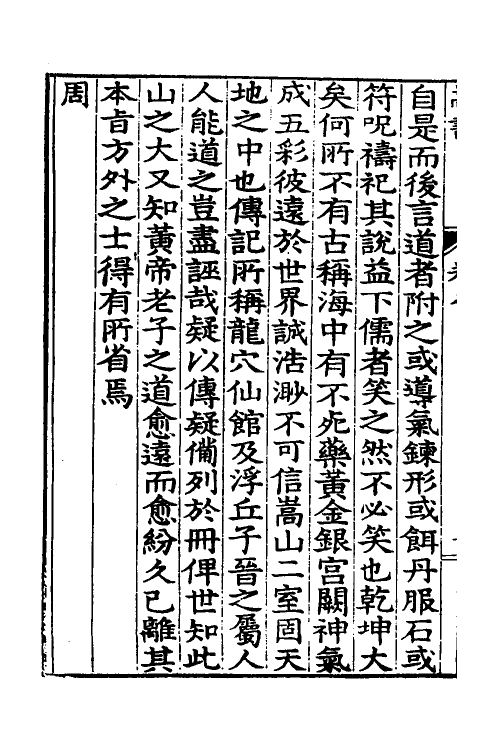 自是而後言道者附之或導氣鍊形或餌丹服石或
符呪禱祀其說益下儒者笑之然不必笑也乾坤大
矣何所不有古稱海中有不死藥黃金銀宮闕神氣
成五彩彼遠於世界誠浩渺不可信嵩山二室固天
地之中也傳記所稱龍穴仙館及浮丘子晉之屬人
人能道之豈盡誣哉疑以傳疑備列於冊俾世知此
山之大又知黃帝老子之道愈遠而愈紛久已離其
本旨方外之士得有所省焉
周